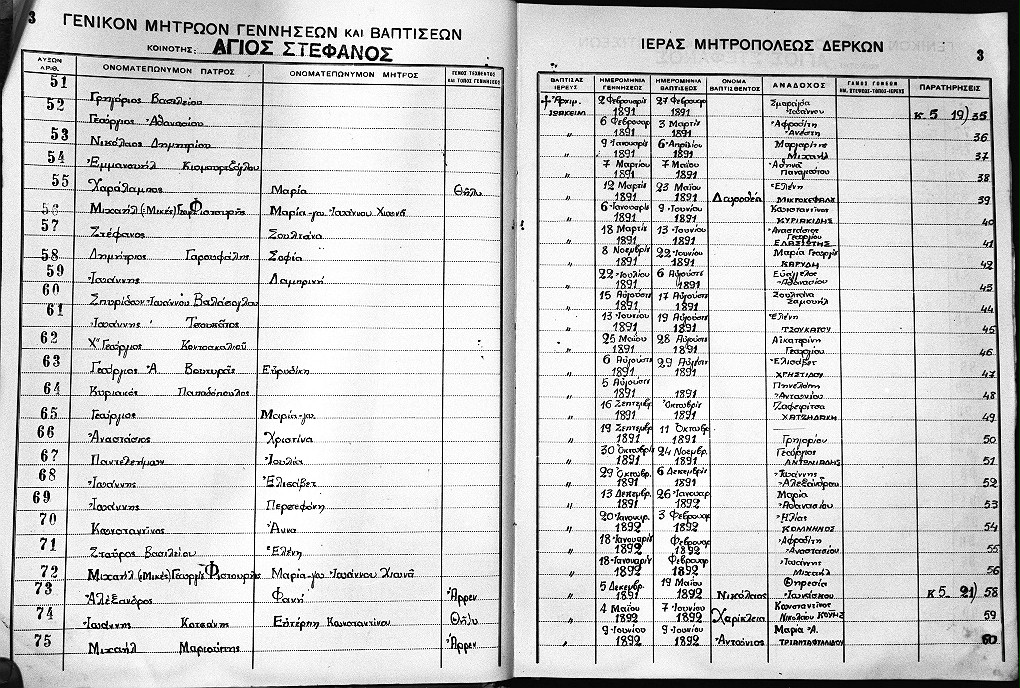 3
ΓΕΝΙΚΟΝ ΜΗΤΡΩΟΝ ΓΕΝΝΗΣΕΩΝ ΚΑΙ ΒΑΠΤΙΣΕΩΝ
ΚΟΙΝΟΤΗΣ: ΑΓΙΟΣ ΣΤΕΦΑΝΟΣ
ΑΥΞΩΝ ΑΡΙΘ. ΟΝΟΜΑΤΕΠΩΝΥΜΟΝ ΠΑΤΡΟΣ ΟΝΟΜΑΤΕΠΩΝΥΜΟΝ ΜΗΤΡΟΣ ΓΕΝΟΣ ΤΕΧΘΕΝΤΟΣ ΚΑΙ ΤΟΠΟΣ ΓΕΝΝΗΣΕΩΣ
51 Γρηγόριος Βασιλείου
52 Γεώργιος Ἀθανασίου
53 Νικόλαος Δημητρίου
54 Ἐμμανουήλ
55 Χαράλαμπος Μαρία Θῆλυ
56 Μιχαήλ (Μικές) Γεωρ. Φιστουρῆς Μαρία-γυ. Ἰωάννου Χιονᾶ
57 Στέφανος Σουλτάνα
58 Δημήτριος Γαρουφάλης Σοφία
59 Ἰωάννης Λαμπρινή
60 Σπυρίδων Ἰωάννου
61 Ἰωάννης Τσουκᾶτος
62 Χ"Γεώργιος Κοντοσκαλιοῦ
63 Γεώργιος Α. Βουτυρᾶς Εὐρυδίκη
64 Κυριακός Παπαδόπουλος
65 Γεώργιος Μαρία-γυ.
66 Ἀναστάσιος Χριστίνα
67 Παντελεήμων Ἰουλία
68 Ἰωάννης Ἐλισάβετ
69 Ἰωάννης Περσεφόνη
70 Κωνσταντῖνος Ἄννα
71 Σταῦρος Βασιλείου Ἑλένη
72 Μιχαήλ (Μικές) Γεωργ. Φιστουρῆς Μαρία-γυ. Ἰωάννου Χιονᾶ
73 Ἀλέξανδρος Φανή Ἄρρεν
74 Ἰωάννης Κοτσάνης Εὐτέρπη Κωνσταντίνου Θῆλυ
75 Μιχαήλ Μαριούπης Ἄρρεν
ΙΕΡΑΣ ΜΗΤΡΟΠΟΛΕΩΣ ΔΕΡΚΩΝ
3
ΒΑΠΤΙΣΑΣ ΙΕΡΕΥΣ ΗΜΕΡΟΜΗΝΙΑ ΓΕΝΝΗΣΕΩΣ ΗΜΕΡΟΜΗΝΙΑ ΒΑΠΤΙΣΕΩΣ ΟΝΟΜΑ ΒΑΠΤΙΣΘΕΝΤΟΣ ΑΝΑΔΟΧΟΣ ΓΑΜΟΣ ΓΟΝΕΩΝ ΠΑΡΑΤΗΡΗΣΕΙΣ
† Ἀρχιμ. Ἰωακείμ 2 Φεβρουαρίς 1891 27 Φεβρουαρ 1891 Σμαράγδα Ἰωάννου Κ 5 19) 35
" 6 Φεβρουαρ 1891 3 Μαρτίς 1891 Ἀφροδίτη Ἀνέστη 36
" 9 Ἰανουαρίς 1891 6 Ἀπριλίου 1891 Μαργαρίτης Μιχαήλ 37
" 7 Μαρτίου 1891 7 Μαΐου 1891 Ἀθηνᾶ Παναγιώτου 38
" 12 Μαρτίς 1891 23 Μαΐου 1891 Δωροθέα Ἑλένη ΜΙΚΡΟΚΕΦΑΛΟΣ 39
" 6 Ἰανουαρίς 1891 9 Ἰουνίου 1891 Κωνσταντῖνος ΚΥΡΙΑΚΙΔΗΣ 40
" 18 Μαρτίς 1891 13 Ἰουνίου 1891 Ἀναστάσιος Γεωργίου 41
" 8 Νοεμβρίς 1891 22 Ἰουνίου 1891 Μαρία Γεωργίς ΚΑΡΥΔΗ 42
" 22 Ἰουλίου 1891 6 Αὐγούστς 1891 Εὐάγγελος Ἀθανασίου 43
" 15 Αὐγούστς 1891 17 Αὐγούστς 1891 Σουλτάνα Σαμουήλ 44
" 13 Ἰουνίου 1891 19 Αὐγούστς 1891 Ἑλένη ΤΖΟΥΚΑΤΟΥ 45
" 25 Μαΐου 1891 28 Αὐγούστ 1891 Αἰκατερίνη Γεωργίου 46
" 6 Αὐγούστς 1891 29 Αὐγούστς 1891 Ἐλισάβετ ΧΡΗΣΤΙΔΟΥ 47
" 5 Αὐγούστς 1891 1891 Πηνελόπη Ἀντωνίου 48
" 16 Σεπτεμβρ 1891 Ὀκτωβρίς 1891 Ζαφειρίτσα ΧΑΤΖΗΔΑΚΗ 49
" 19 Σεπτεμβρ 1891 11 Ὀκτωβρ 1891 Γρηγορίου 50
" 30 Ὀκτωβρίς 1891 24 Νοεμβρ. 1891 Γεώργιος ΑΝΤΩΝΙΑΔΗΣ 51
" 29 Ὀκτωβρ. 1891 6 Δεκεμβρίς 1891 Ἰωάννης Ἀλεξάνδρου 52
" 13 Δεκεμβρ. 1891 26 Ἰανουαρ 1892 Μαρία Ἀθανασίου 53
" 20 Ἰανουαρ. 1892 3 Φεβρουαρ 1892 Ἠλίας ΚΟΜΝΗΝΟΣ 54
" 18 Ἰανουαρίς 1892 Φεβρουαρ 1892 Ἀφροδίτη Ἀναστασίου 55
" 18 Ἰανουαρίς 1892 Φεβρουαρ 1892 Ἰωάννης Μιχαήλ 56
" 5 Δεκεμβρ. 1891 19 Μαΐου 1892 Νικόλαος Θηρεσία Κ 5 21) 58
" 4 Μαΐου 1892 7 Ἰουνίου 1892 Χαρίκλεια Κωνσταντῖνος Νικολάου 59
" 9 Ἰουνίου 1892 9 Ἰουνίου 1892 Ἀντώνιος Μαρία Α. ΤΡΙΑΝΤΑΦΥΛΛΙΔΟΥ 60